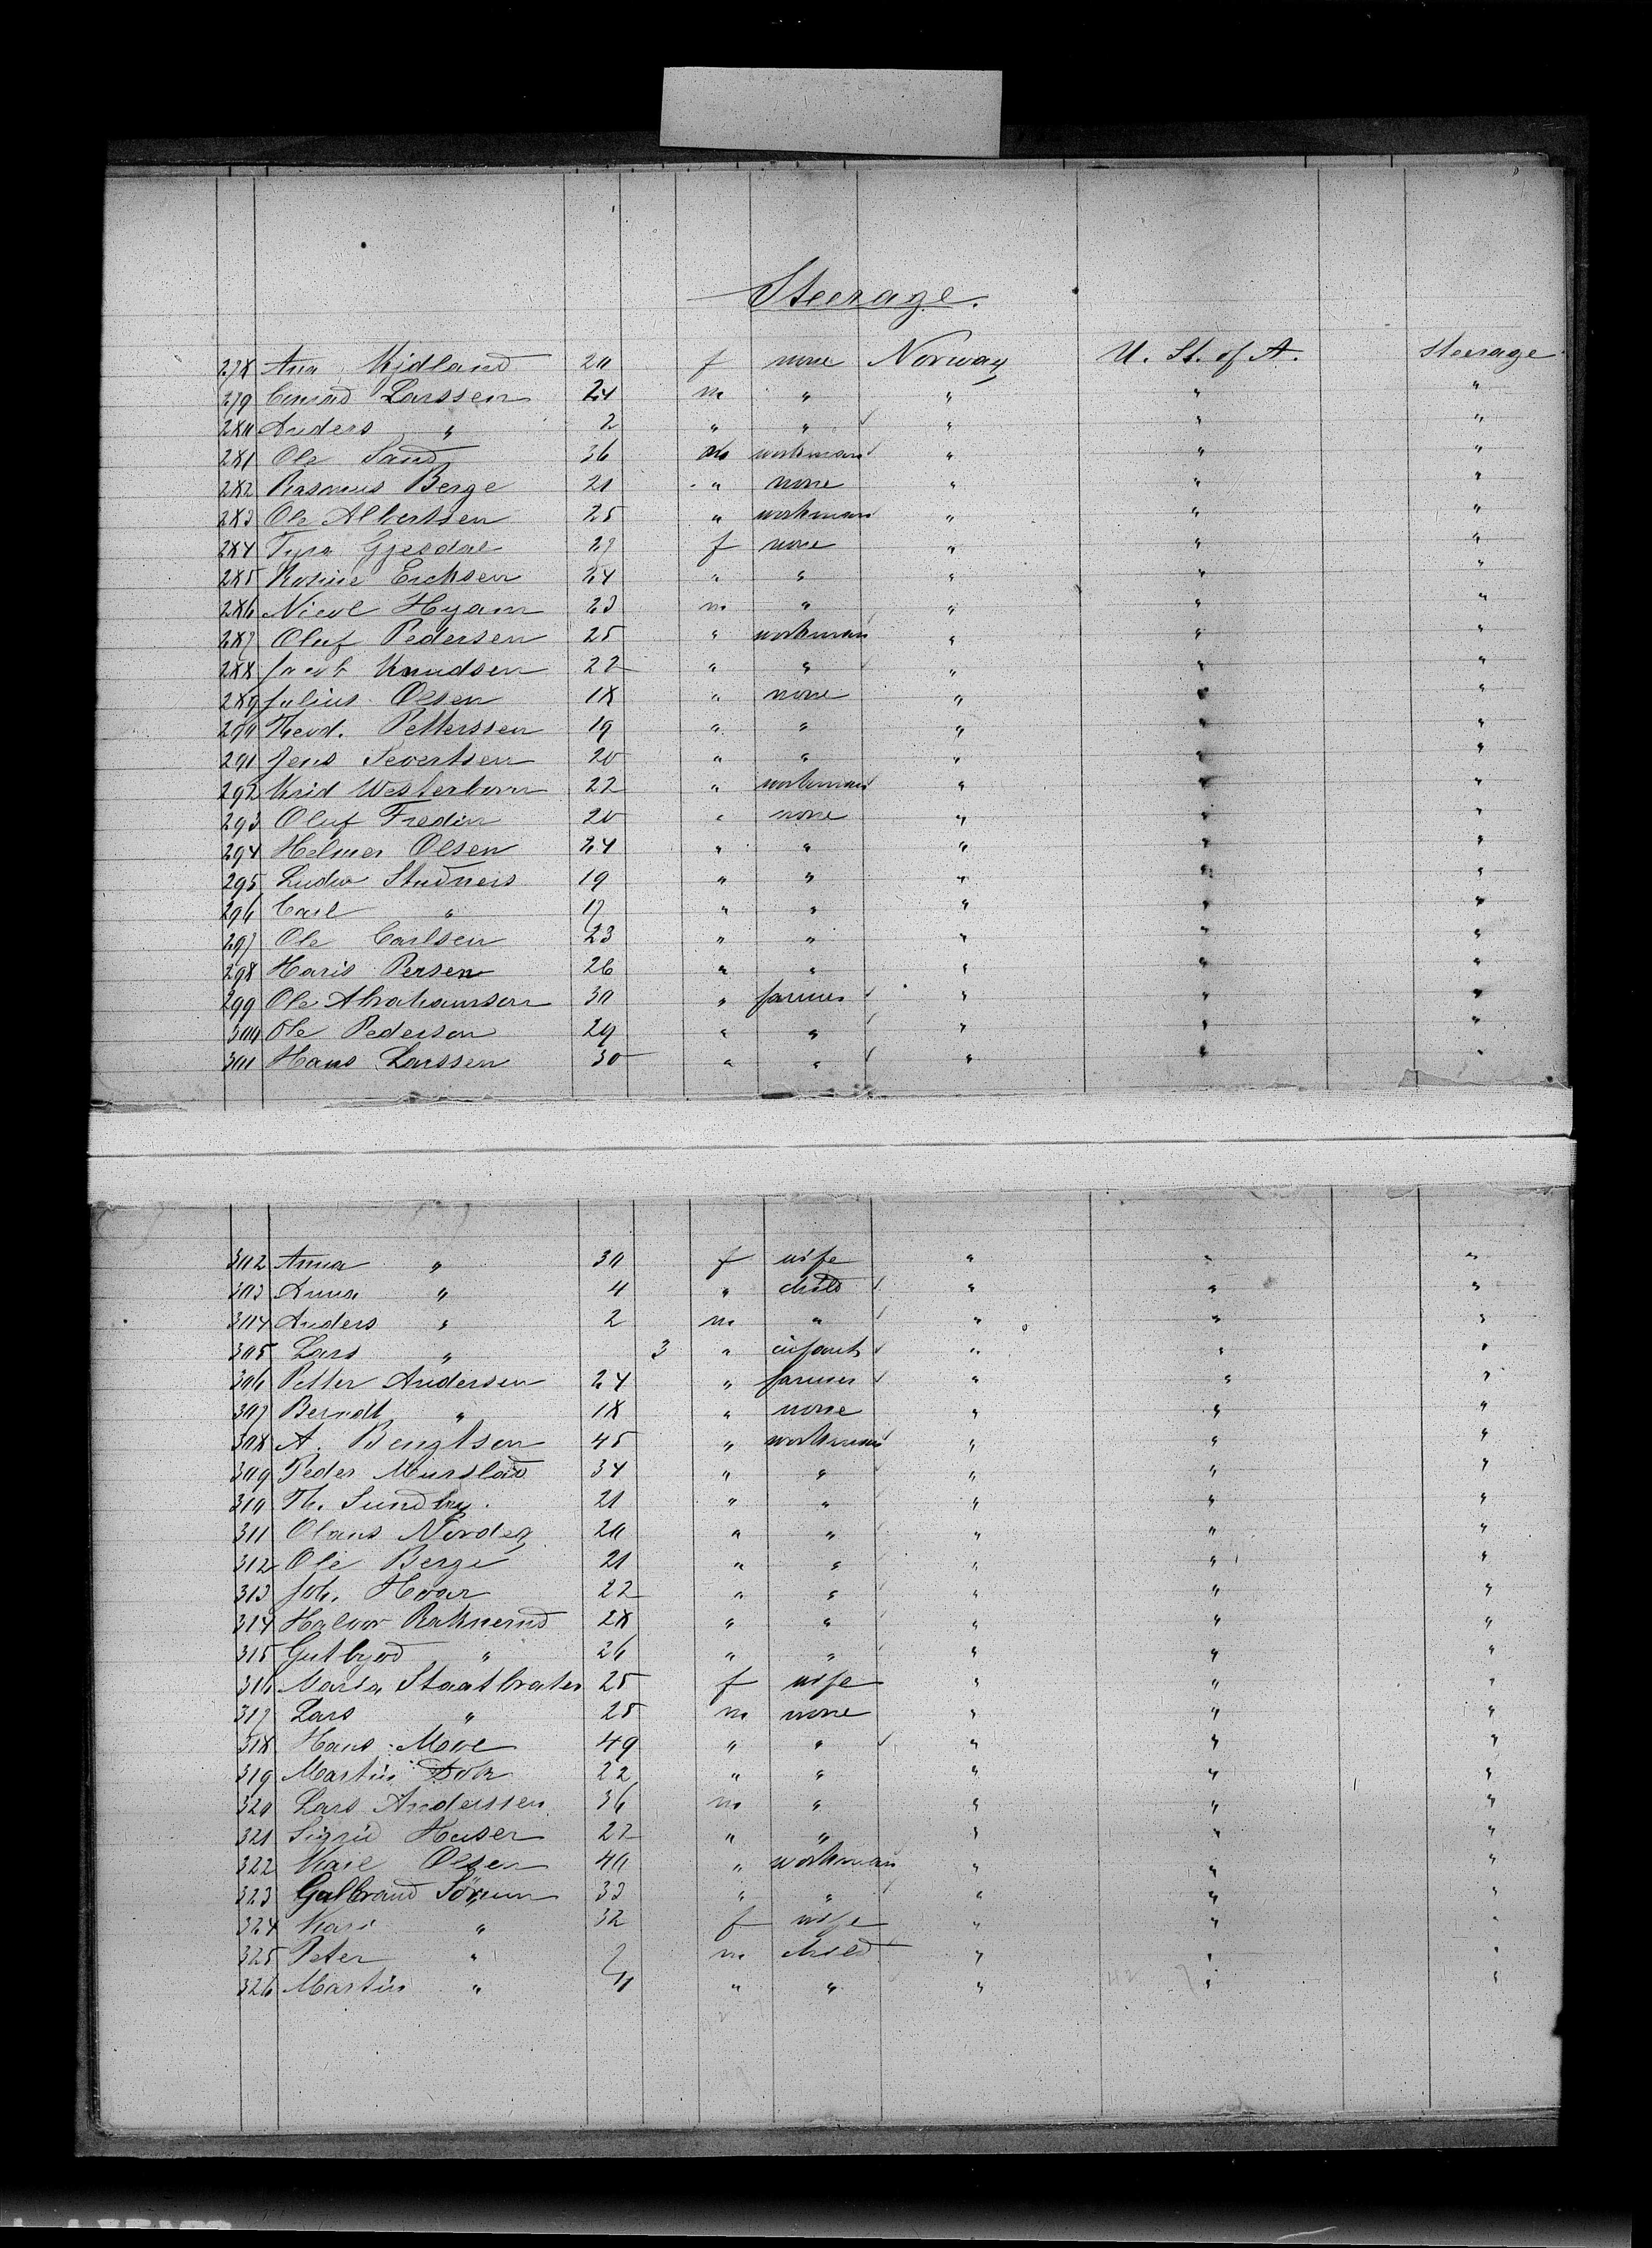 Steerage.
278 Ana Kjdland 20 f none Norway U. St. of A. Steerage
279 Conrad Larssen 24 m " " " "
280 Anders " 2 " " " " "
281 Ole Sand 36 m workman " " "
282 Rasmus Berge 21 " none " " "
283 Ole Albertsen 25 " workman " " "
284 Tyra Gjesdal 27 f none " " "
285 Rosine Ericksen 24 " " " " "
286 Nicol Hyam 23 m " " " "
287 Oluf Pedersen 25 " workman " " "
288 Jacob Knudsen 22 " " " " "
289 Julius Olsen 18 " none " " "
290 Theod. Petterssen 19 " " " " "
291 Jens Severtsen 20 " " " " "
292 Krid Westerborn 22 " workman " " "
293 Oluf Fredin 20 " none " " "
294 Helmer Olsen 24 " " " " "
295 Ludw Studners 19 " " " " "
296 Carl " 17 " " " " "
297 Ole Carlsen 23 " " " " "
298 Haris Persen 26 " " " " "
299 Ole Abrahamsen 30 " farmer " " "
300 Ole Pedersen 29 " " " " "
301 Hans Larssen 30 " " " " "
302 Anna " 30 f wife " " "
303 Anna " 4 " child " " "
304 Anders " 2 m " " " "
305 Lars " 3 " infant " " "
306 Petter Andersen 24 " farmer " " "
307 Berndt " 18 " none " " "
308 A. Bengtsen 45 " workman " " "
309 Peder Murslad 34 " " " " "
310 Th. Sundby. 21 " " " " "
311 Olaus Nordeg 20 " " " " "
312 Ole Berge 21 " " " " "
313 Joh. Hoar 22 " " " " "
314 Halvor Raknerud 28 " " " " "
315 Gutbyod " 26 " " " " "
316 Maria Staatbraten 25 f wife " " "
317 Lars " 25 m none " " "
318 Hans Moe 49 " " " " "
319 Martin 22 " " " " "
320 Lars Anderssen 36 m " " " "
321 Sigrid Huser 22 " " " " "
322 Karl Olsen 40 " workman " " "
323 Gulbrand Sörum 33 " " " " "
324 Kari " 32 f wife " " "
325 Peter " 7 m child " " "
326 Martin " 4 " " " " "